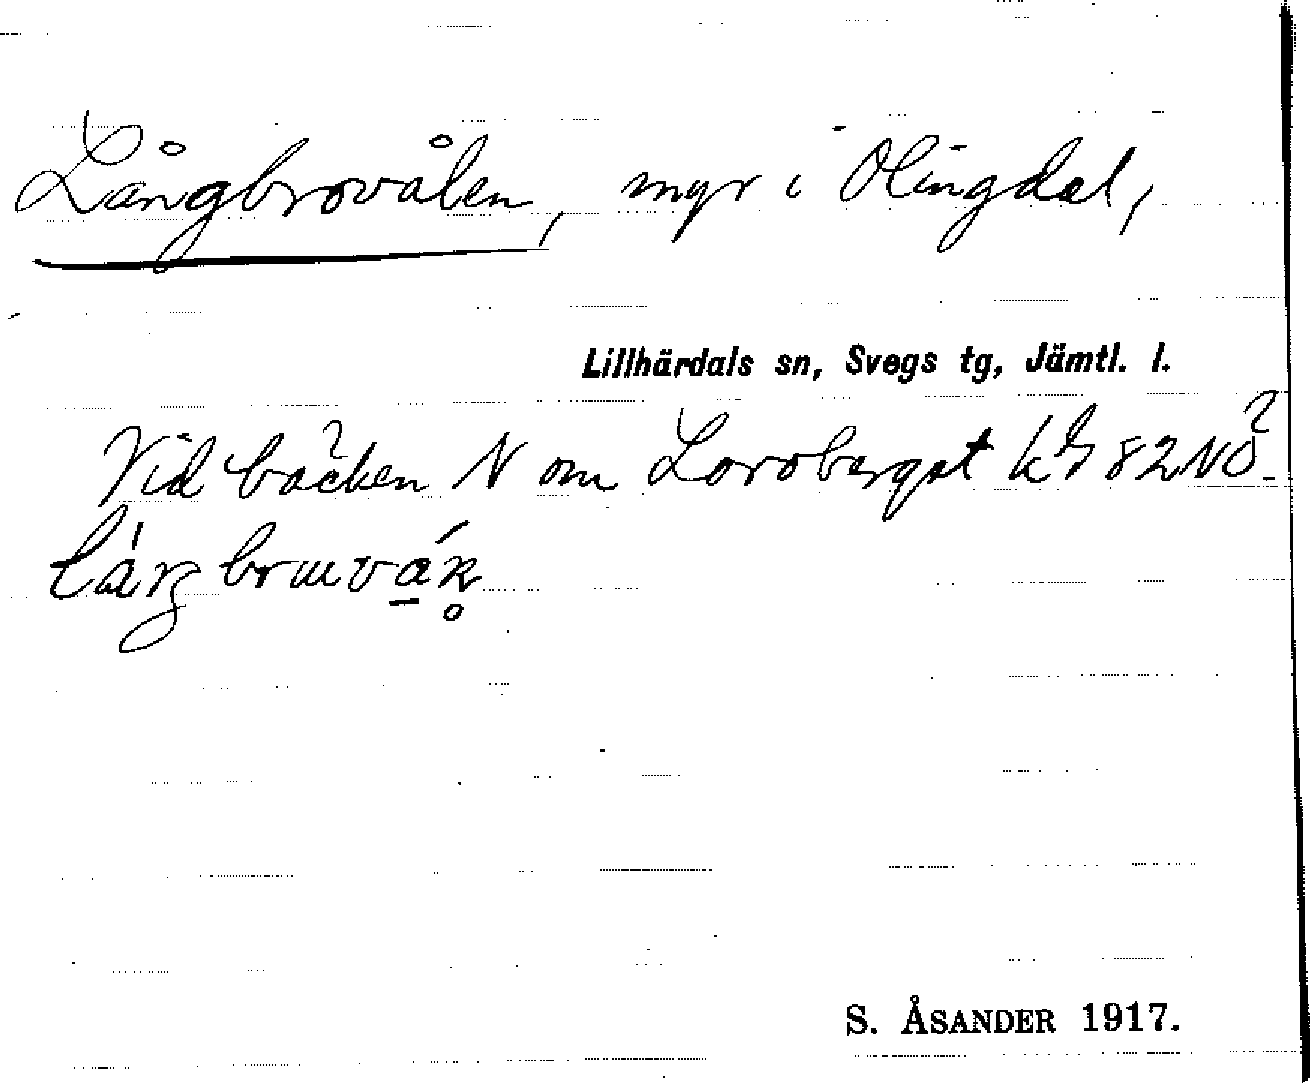 Långbrovålen, myr i Olingdal,
Lillhärdals sn, Svegs tg, Jämtl. l.
Vid bäcken N om Loroberget 82 NÖ.
S. ÅSANDER 1917.